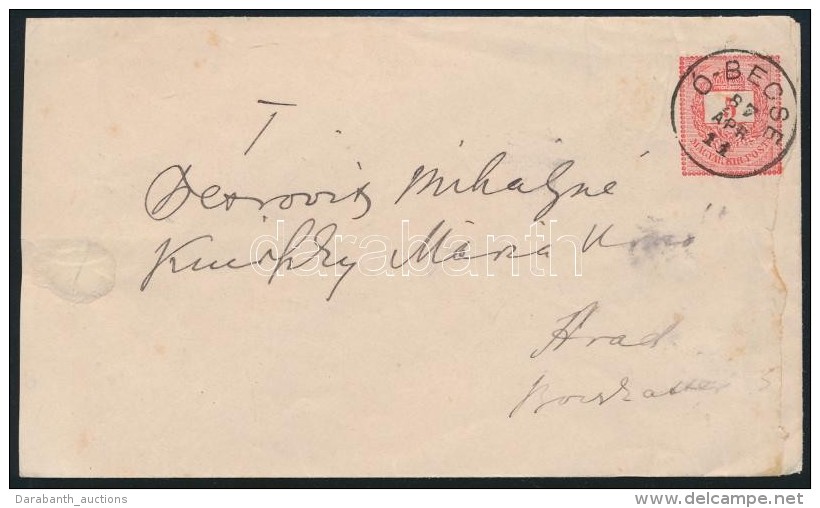 Ó-BECSE
87
APR.
11
5
MAGYAR KIR. POSTA
T
Petrovits Mihályné
Mária
Arad
darabanth
Darabanth_auctions
www.delcampe.net